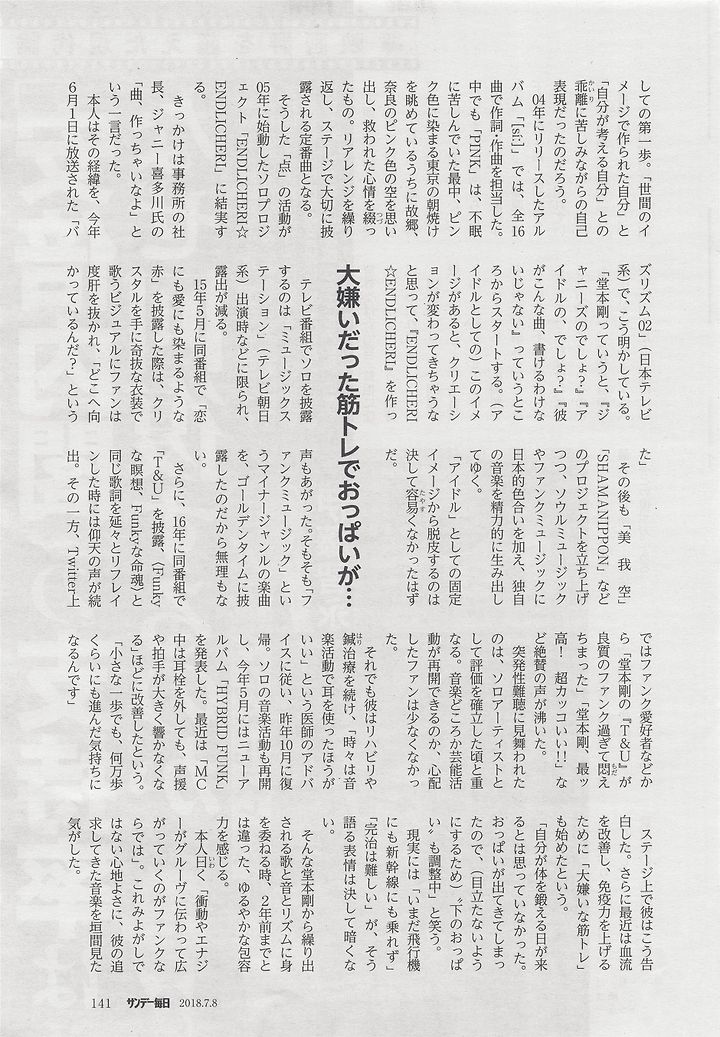 しての第一歩。「世間のイ
メージで作られた自分」と
「自分が考える自分」との
乖離に苦しみながらの自己
表現だったのだろう。
04年にリリースしたアル
バム「[si:]」では、全16
曲で作詞・作曲を担当した。
中でも「PINK」は、不眠
に苦しんでいた最中、ピン
ク色に染まる東京の朝焼け
を眺めているうちに故郷、
奈良のピンク色の空を思い
出し、救われた心情を綴っ
たもの。リアレンジを繰り
返し、ステージで大切に披
露される定番曲となる。
そうした「点」の活動が
05年に始動したソロプロジ
ェクト「ENDLICHERI☆
ENDLICHERI」に結実す
る。
きっかけは事務所の社
長、ジャニー喜多川氏の
「曲、作っちゃいなよ」と
いう一言だった。
本人はその経緯を、今年
6月1日に放送された「バ
ズリズム02」（日本テレビ
系）で、こう明かしている。
「堂本剛っていうと、『ジ
ャニーズのでしょ?』『ア
イドルの、でしょ?』『彼
がこんな曲、書けるわけな
いじゃない』っていうとこ
ろからスタートする。（ア
イドルとしての）このイメ
ージがあると、クリエーシ
ョンが変わってきちゃうな
と思って、『ENDLICHERI
☆ENDLICHERI』を作っ
た」
その後も「美 我 空」
「SHAMANIPPON」など
のプロジェクトを立ち上げ
つつ、ソウルミュージック
やファンクミュージックに
日本的色合いを加え、独自
の音楽を精力的に生み出し
てゆく。
「アイドル」としての固定
イメージから脱皮するのは
決して容易くなかったはず
大嫌いだった筋トレでおっぱいが…
テレビ番組でソロを披露
するのは「ミュージックス
テーション」（テレビ朝日
系）出演時などに限られ、
露出が減る。
15年5月に同番組で「恋
にも愛にも染まるような
赤」を披露した際は、クリ
スタルを手に奇抜な衣装で
歌うビジュアルにファンは
度肝を抜かれ、「どこへ向
かっているんだ?」という
声もあがった。そもそも「フ
ァンクミュージック」とい
うマイナージャンルの楽曲
を、ゴールデンタイムに披
露したのだから無理もな
い。
さらに、16年に同番組で
「T&U」を披露、〈Funky
な瞑想、Funkyな命魂〉と
同じ歌詞を延々とリフレイ
ンした時には仰天の声が続
出。その一方、Twitter上
ではファンク愛好者などか
ら「堂本剛の『T&U』が
良質のファンク過ぎて悶え
ちまった」「堂本剛、最ッ
高! 超カッコいい!!」な
ど絶賛の声が沸いた。
突発性難聴に見舞われた
のは、ソロアーティストと
して評価を確立した頃と重
なる。音楽どころか芸能活
動が再開できるのか、心配
したファンは少なくなかっ
た。
それでも彼はリハビリや
鍼治療を続け、「時々は音
楽活動で耳を使ったほうが
いい」という医師のアドバ
イスに従い、昨年10月に復
帰。ソロの音楽活動も再開
し、今年5月にはニューア
ルバム「HYBRID FUNK」
を発表した。最近は「MC
中は耳栓を外しても、声援
や拍手が大きく響かなくな
る」ほどに改善したという。
「小さな一歩でも、何万歩
くらいにも進んだ気持ちに
なるんです」
ステージ上で彼はこう告
白した。さらに最近は血流
を改善し、免疫力を上げる
ために「大嫌いな筋トレ」
も始めたという。
「自分が体を鍛える日が来
るとは思っていなかった。
おっぱいが出てきてしまっ
たので、（目立たないよう
にするため）〝下のおっぱ
い〟も調整中」と笑う。
現実には「いまだ飛行機
にも新幹線にも乗れず」
「完治は難しい」が、そう
語る表情は決して暗くな
い。
そんな堂本剛から繰り出
される歌と音とリズムに身
を委ねる時、2年前までと
は違った、ゆるやかな包容
力を感じる。
本人曰く「衝動やエナジ
ーがグルーヴに伝わって広
がっていくのがファンクな
らでは」。これみよがしで
はない心地よさに、彼の追
求してきた音楽を垣間見た
気がした。
141 サンデー毎日 2018.7.8